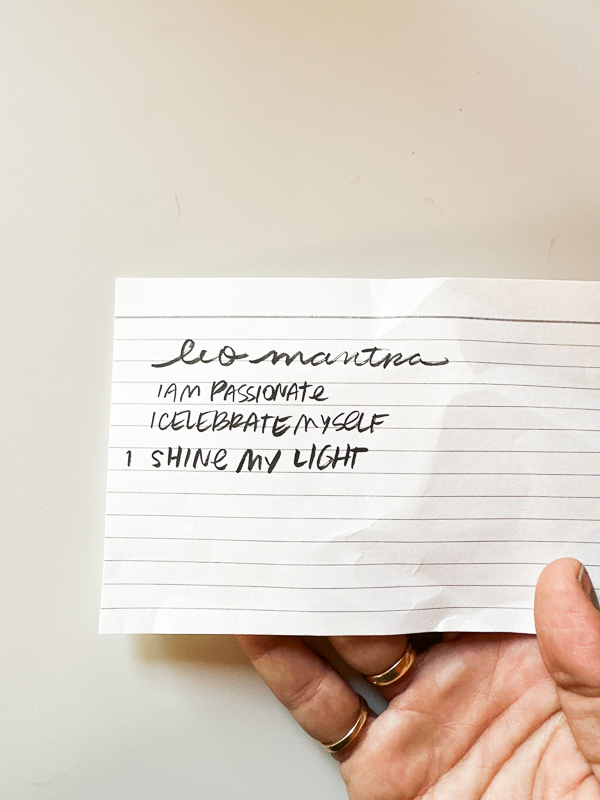 leo mantra
I AM PASSIONATe
I CELEBRATE MYSeLF
I SHINe MY LIGHT